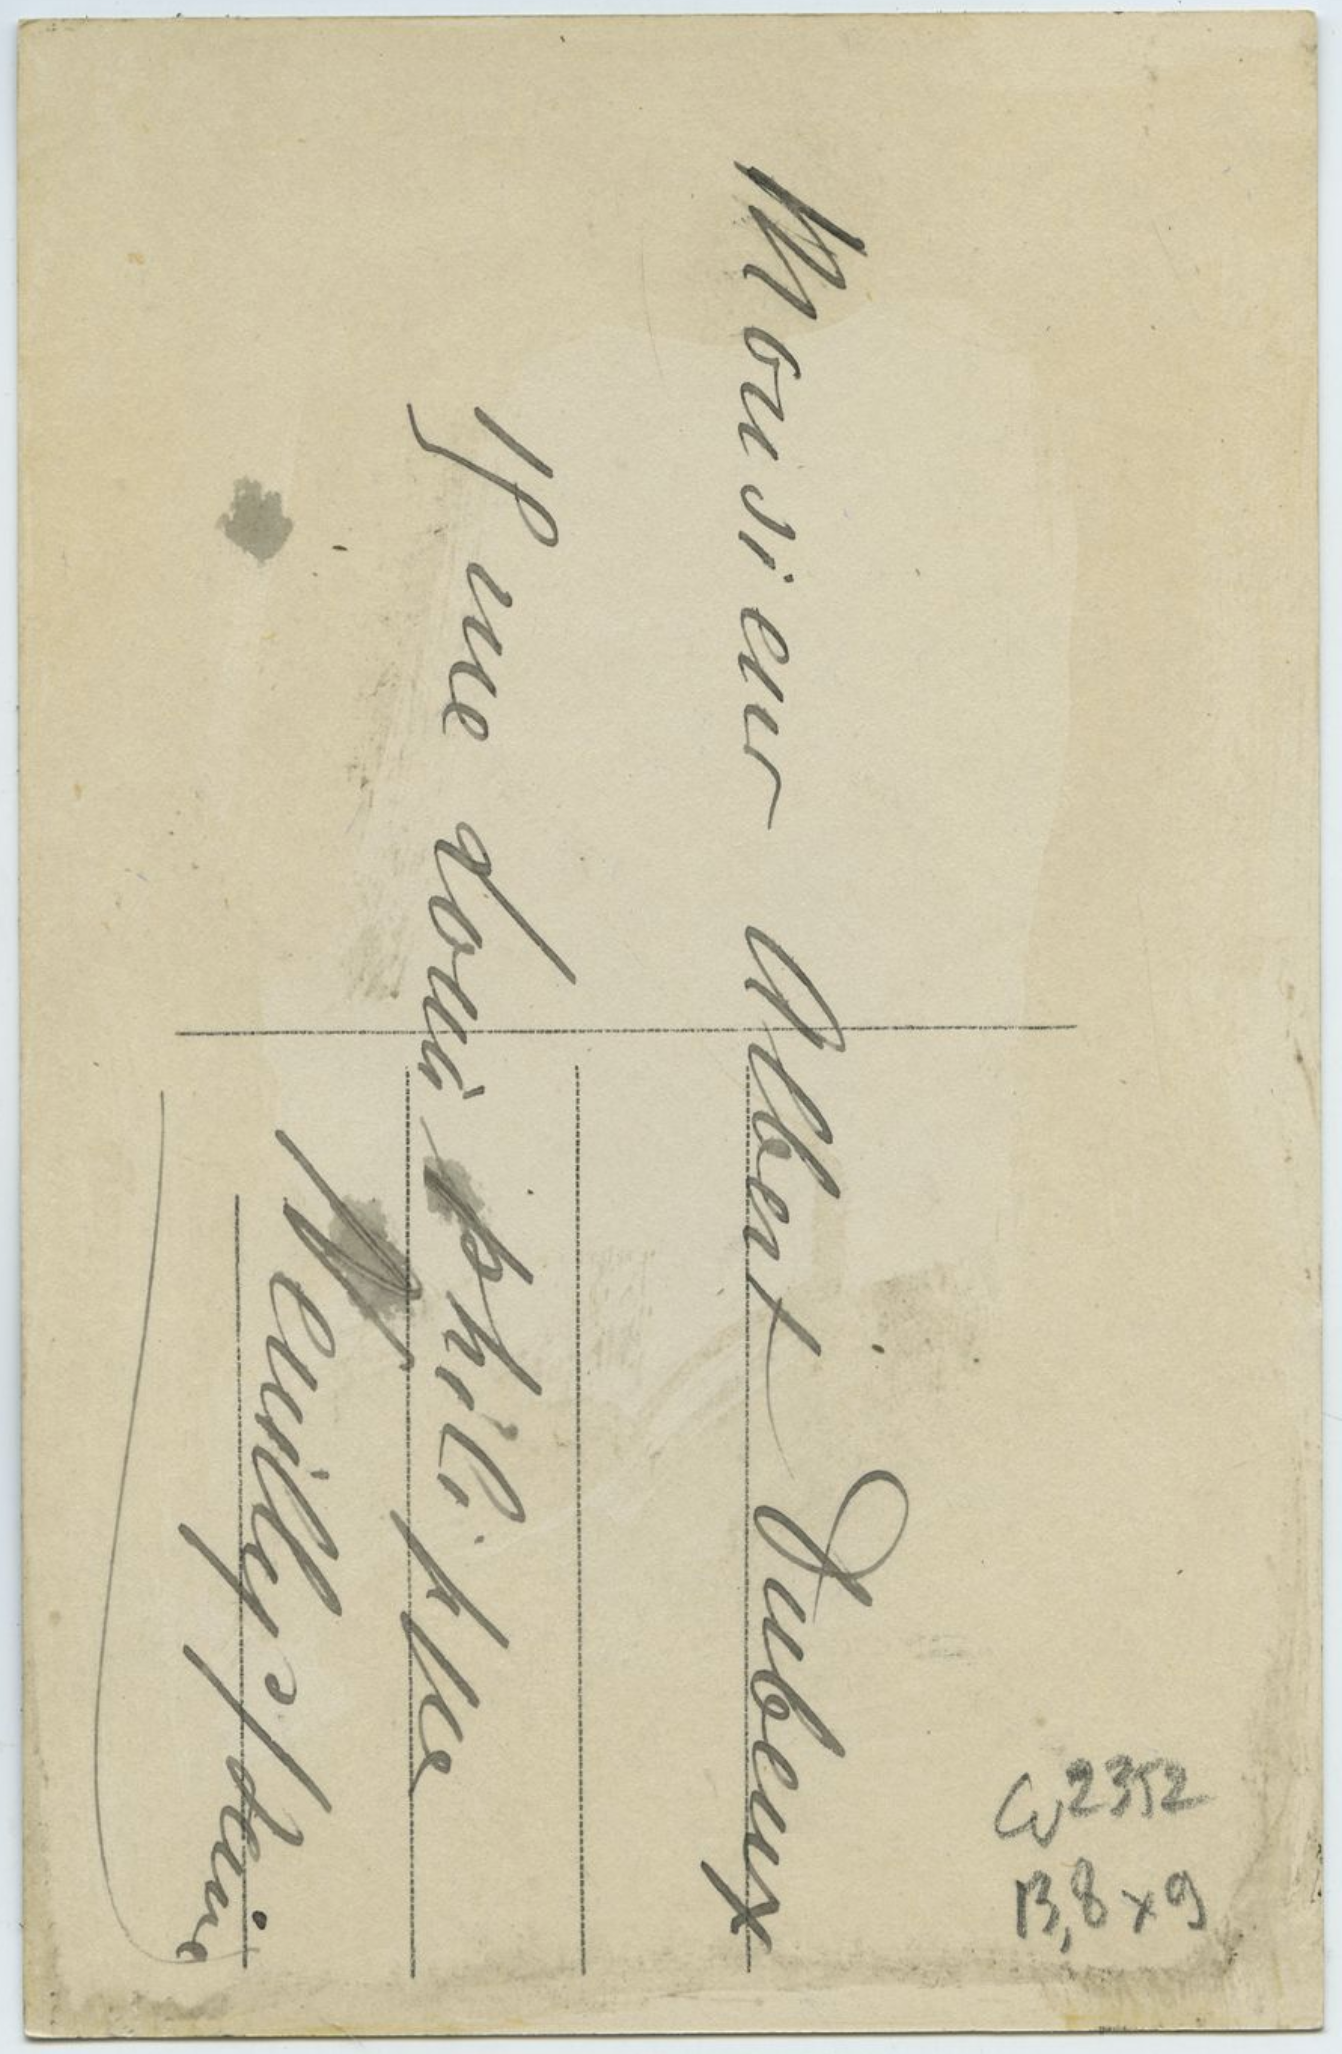 Monsieur Albert Dubeux
rue Louis Philippe
Neuilly s/Seine
2352
13,8 x 9